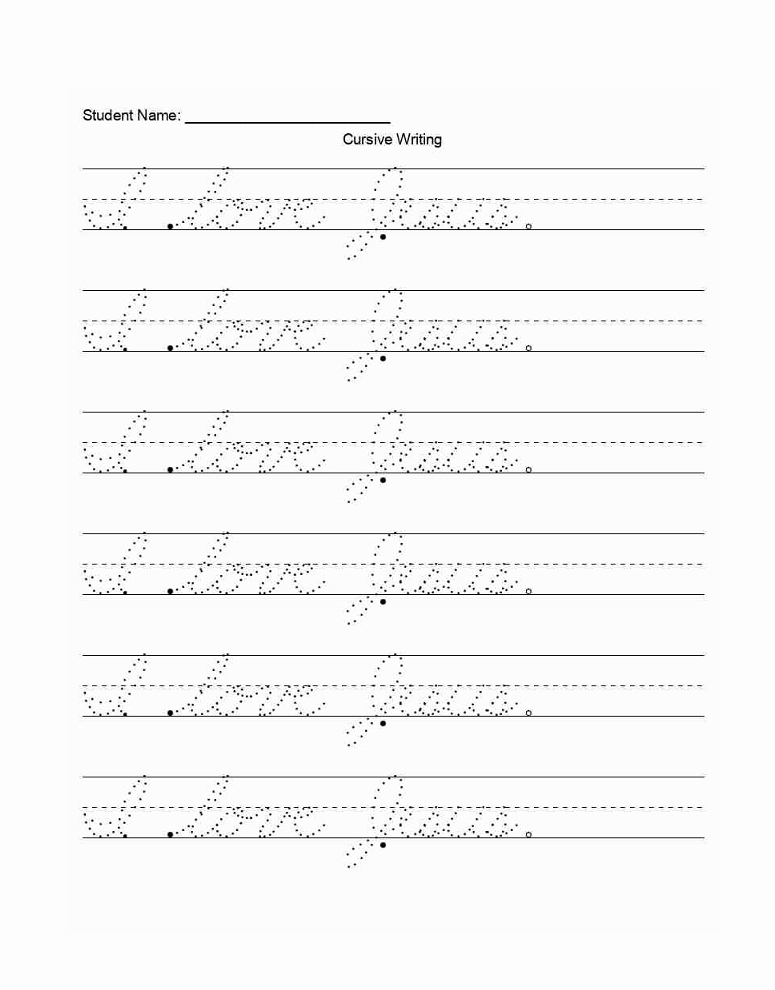 Student Name:
Cursive Writing
I love Jesus.
I love Jesus.
I love Jesus.
I love Jesus.
I love Jesus.
I love Jesus.